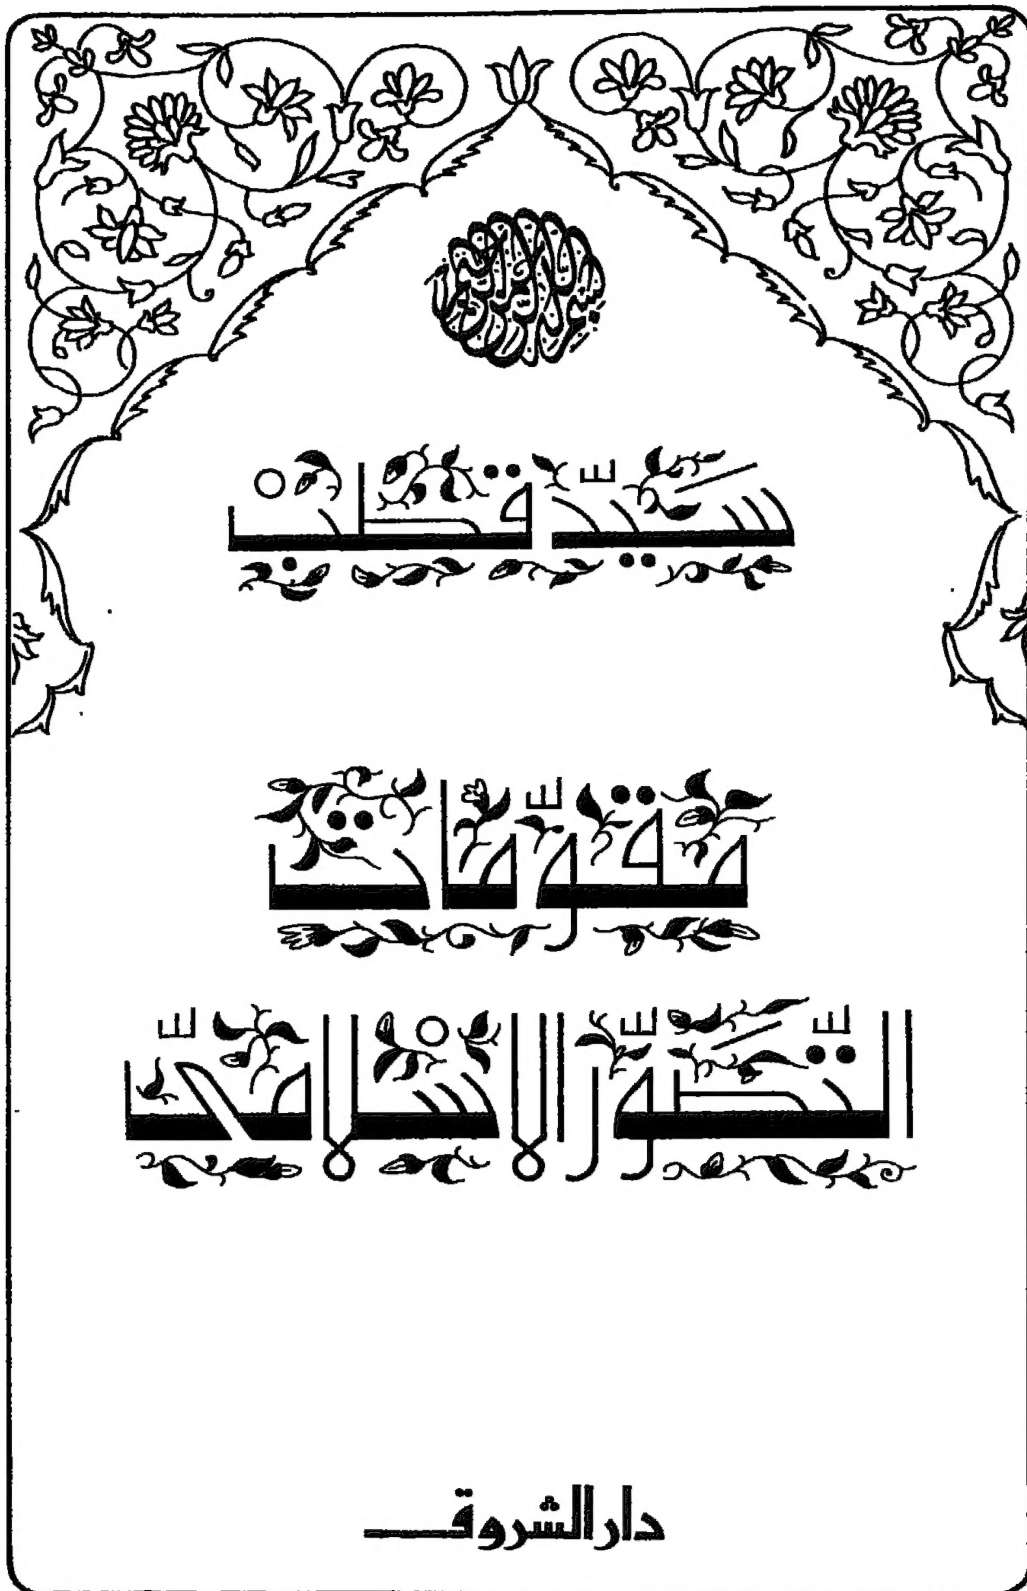 بسم الله الرحمن الرحيم
سَيِّد قطبْ
مقوّمات
التّصَوّر الإسْلاميّ
دار الشروق